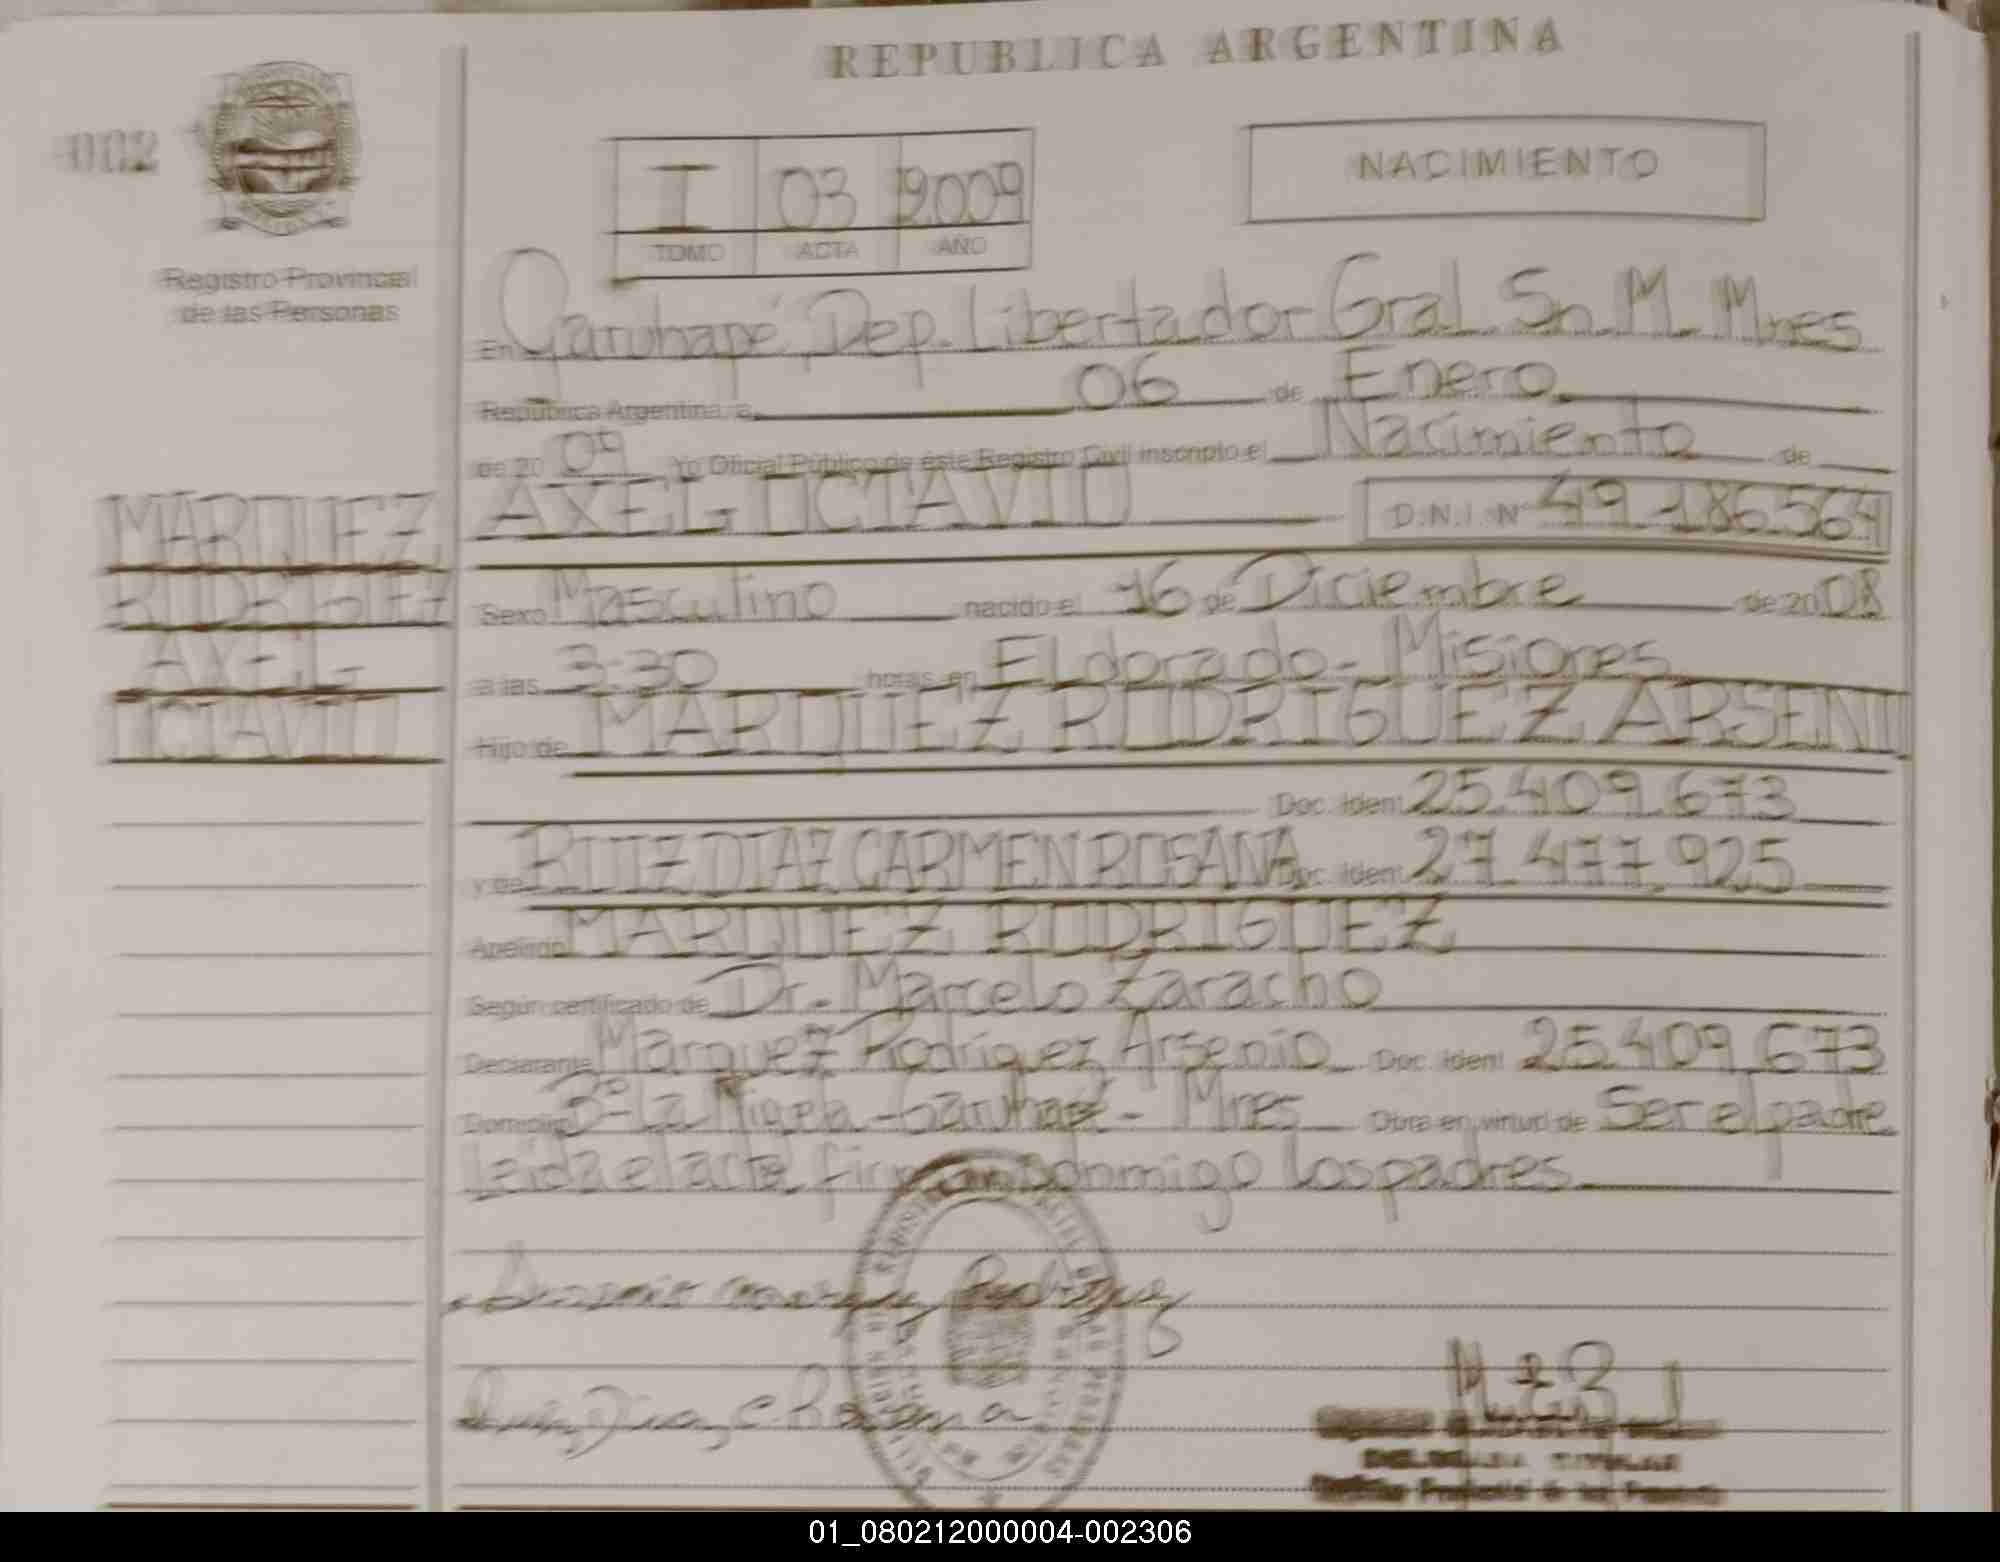 REPUBLICA ARGENTINA
002
NACIMIENTO
I 03 2009
TOMO ACTA AÑO
Registro Provincial
de las Personas
En Garuhapé, Dep. Libertador Gral Sn. M. Mnes
República Argentina, a 06 de Enero
de 2009 Yo Oficial Público de éste Registro Civil inscripto el Nacimiento de
AXEL OCTAVIO D.N.I. Nº 49.186.564
MARQUEZ
RODRIGUEZ
AXEL
OCTAVIO
Sexo Masculino nacido el 16 de Diciembre de 2008
a las 3:30 horas en Eldorado - Misiones
Hijo de MARQUEZ RODRIGUEZ ARSENIO
Doc. Ident. 25.409.673
y de RUIZ DIAZ CARMEN ROSANA Doc. Ident. 27.477.925
Apellido MARQUEZ RODRIGUEZ
Según certificado de Dr. Marcelo Zaracho
Declarante Marquez Rodriguez Arsenio Doc. Ident. 25.409.673
Domicilio Bº La - Garuhapé - Mnes Obra en virtud de Ser el padre
Leida el acta firman conmigo los padres
Arsenio Marquez Rodriguez
Ruiz Diaz, C. Rosana
TITULAR
Registro Provincial de las Personas
01_080212000004-002306